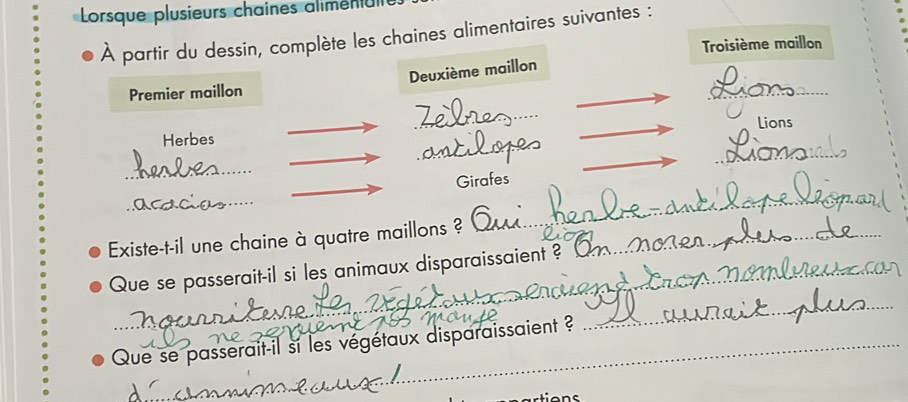 Lorsque plusieurs chaines alimentaires
• À partir du dessin, complète les chaines alimentaires suivantes :
Premier maillon Deuxième maillon Troisième maillon
Herbes Zèbres Lions
herbes antilopes Lions
acacias Girafes Lions
• Existe-t-il une chaine à quatre maillons ? Oui herbe-antilope léopard
lion
• Que se passerait-il si les animaux disparaissaient ? On plus de
nourriture les végétaux seraient trop nombreux car
ils ne seraient pas mangé
• Que se passerait-il si les végétaux disparaissaient ? Il aurait plus
d'annimeaux !